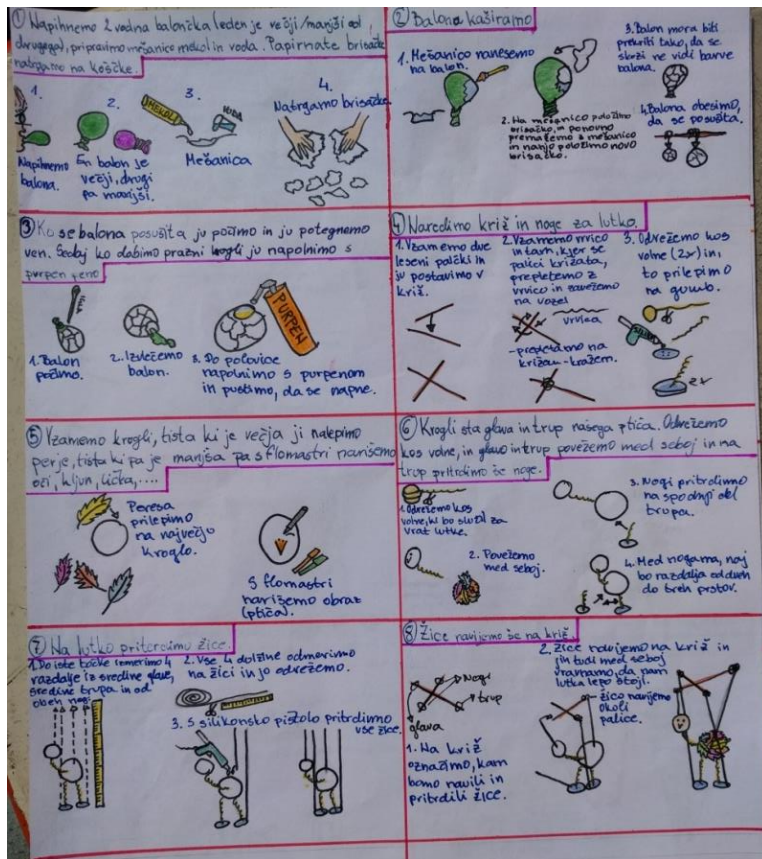 ① Napihnemo 2 vodna balončka (eden je večji/manjši od
drugega), pripravimo mešanico mekol in voda. Papirnate brisače
natrgamo na koščke.
1.
2.
3.
4.
MEKOL
VODA
Natrgamo brisačke
Napihnemo
balona.
En balon je
večji, drugi
pa manjši.
Mešanica
② Balona kaširamo
1. Mešanico nanesemo
na balon.
2. Na mešanico položimo
brisačko, in ponovno
premažemo z mešanico
in nanjo položimo novo
brisačko.
3. Balon mora biti
prekriti tako, da se
skozi ne vidi barve
balona.
4. Balona obesimo,
da se posušita.
③ Ko se balona posušita ju počimo in ju potegnemo
ven. Sedaj ko dobimo prazni krogli ju napolnimo s
purpen peno
1. Balon
počimo.
2. Izvlečemo
balon.
PURPEN
3. Do polovice
napolnimo s purpenom
in pustimo, da se napne.
④ Naredimo križ in noge za lutko.
1. Vzamemo dve
leseni palčki in
ju postavimo v
križ.
2. Vzamemo vrvico
in tam, kjer se
palici križata,
prepletemo z
vrvico in zavežemo
na vozel
vrvica
-prepletamo na
križan-kražem.
3. Odrežemo kos
volne (2x) in,
to prilepimo
na gumb.
2x
⑤ Vzamemo krogli, tista ki je večja ji nalepimo
perje, tista ki pa je manjša pa s flomastri narišemo
oči, kljun, lička,....
Peresa
prilepimo
na največjo
kroglo.
S flomastri
narišemo obraz
(ptiča).
⑥ Krogli sta glava in trup našega ptiča. Odrežemo
kos volne, in glavo in trup povežemo med seboj in na
trup pritrdimo še noge.
1. Odrežemo kos
volne, ki bo služil za
vrat lutke.
2. Povežemo
med seboj.
3. Nogi pritrdimo
na spodnji del
trupa.
4. Med nogama, naj
bo razdalja od dveh
do treh prstov.
⑦ Na lutko pritrdimo žice.
1. Do iste točke izmerimo 4
razdalje iz sredine glave,
sredine trupa in od
obeh nogi
2. Vse 4 dolžine odmerimo
na žici in jo odrežemo.
3. S silikonsko pištolo pritrdimo
vse žice.
⑧ Žice navijemo še na križ
Nogi
trup
glava
1. Na križ
označimo, kam
bomo navili in
pritrdili žice.
2. Žice navijemo na križ in
jih tudi med seboj
vravnamo, da nam
lutka lepo stoji.
- žico navijemo
okoli
palice.